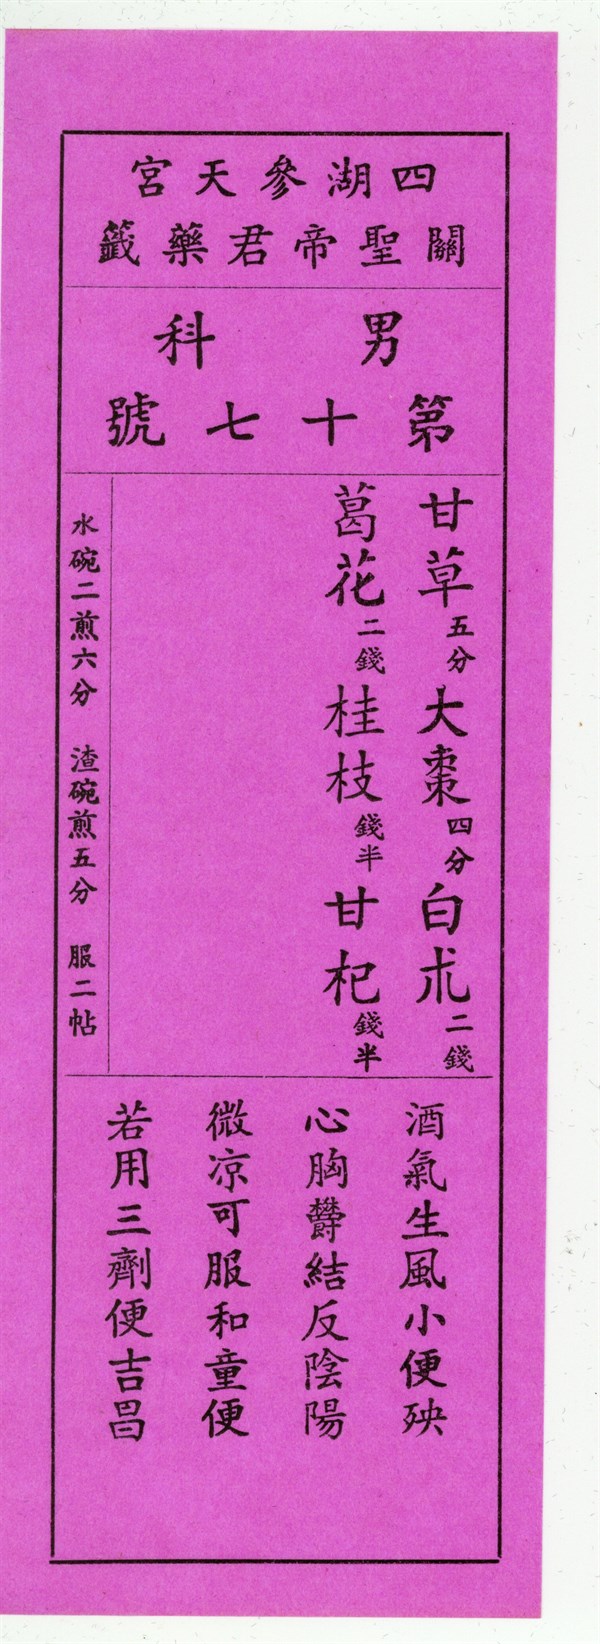 四湖參天宮
關聖帝君藥籤
男科
第十七號
甘草五分 大棗四分 白朮二錢
葛花二錢 桂枝錢半 甘杞錢半
水碗二煎六分 渣碗煎五分 服二帖
酒氣生風小便殃
心胸欝結反陰陽
微凉可服和童便
若用三劑便吉昌